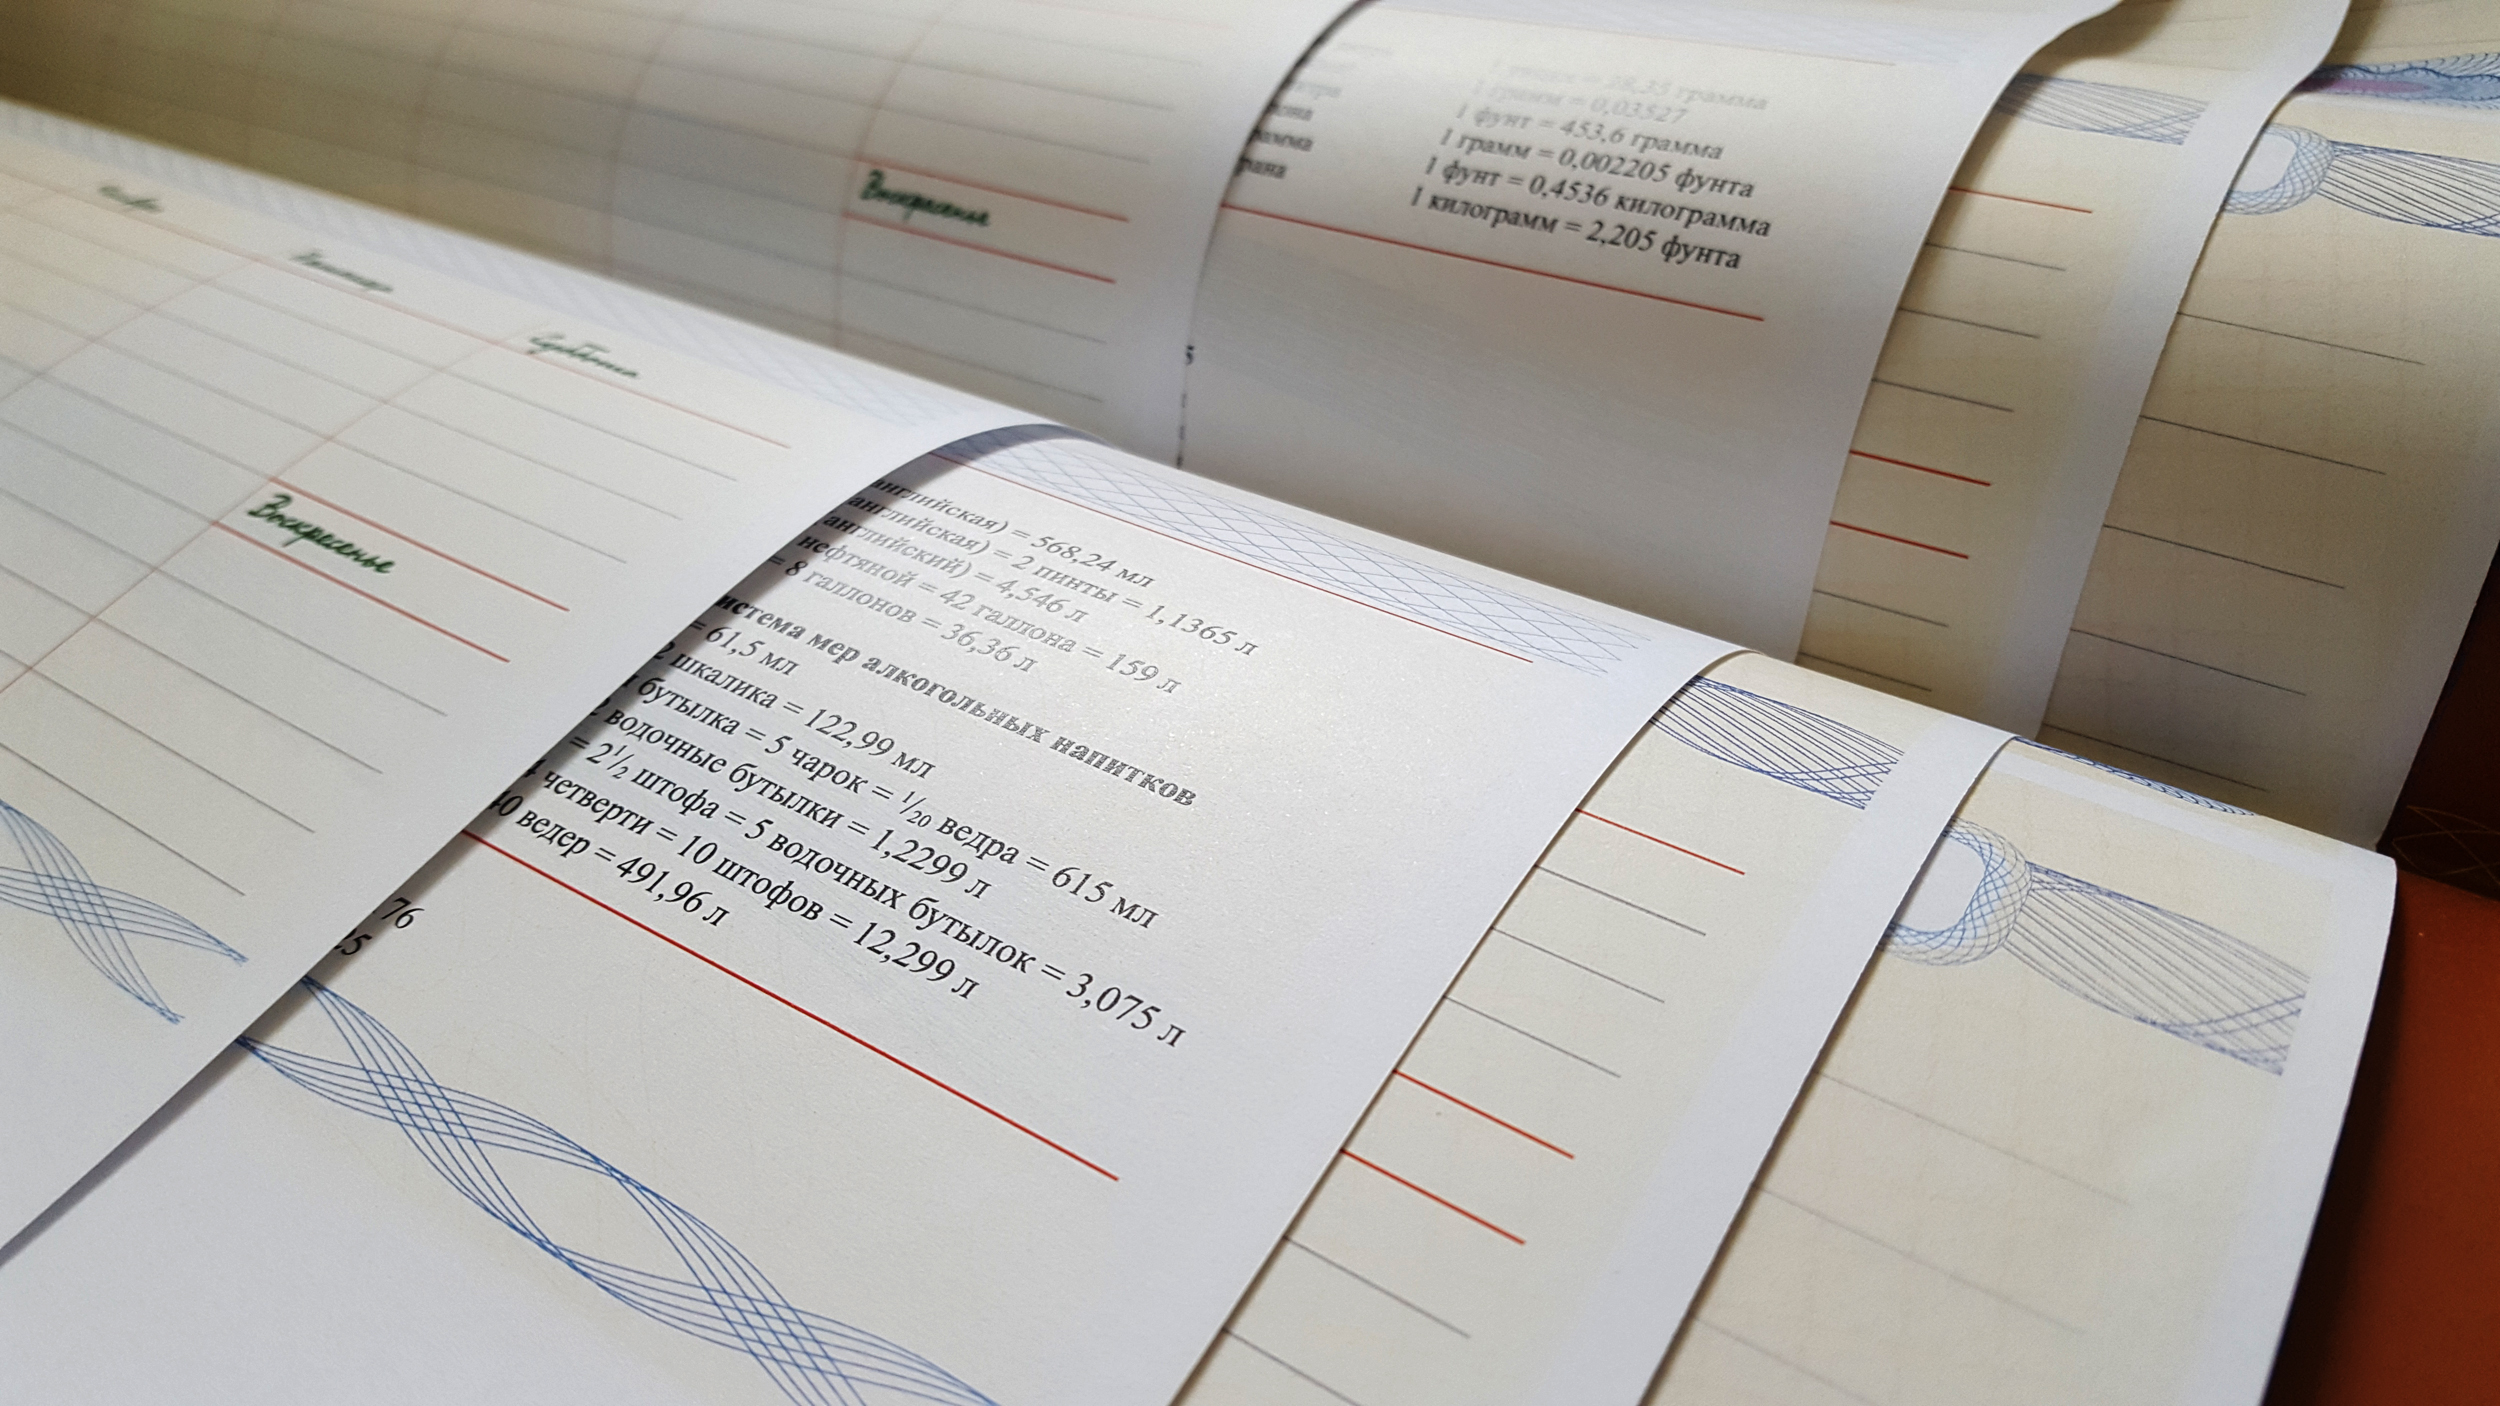 Воскресенье
1 унция = 28,35 грамма
1 грамм = 0,03527
1 фунт = 453,6 грамма
1 грамм = 0,002205 фунта
1 фунт = 0,4536 килограмма
1 килограмм = 2,205 фунта
5
Суббота
Воскресенье
английская) = 568,24 мл
английская) = 2 пинты = 1,1365 л
английский) = 4,546 л
нефтяной = 42 галлона = 159 л
= 8 галлонов = 36,36 л
истема мер алкогольных напитков
= 61,5 мл
2 шкалика = 122,99 мл
бутылка = 5 чарок = 1/20 ведра = 615 мл
2 водочные бутылки = 1,2299 л
= 2 1/2 штофа = 5 водочных бутылок = 3,075 л
4 четверти = 10 штофов = 12,299 л
40 ведер = 491,96 л
76
25